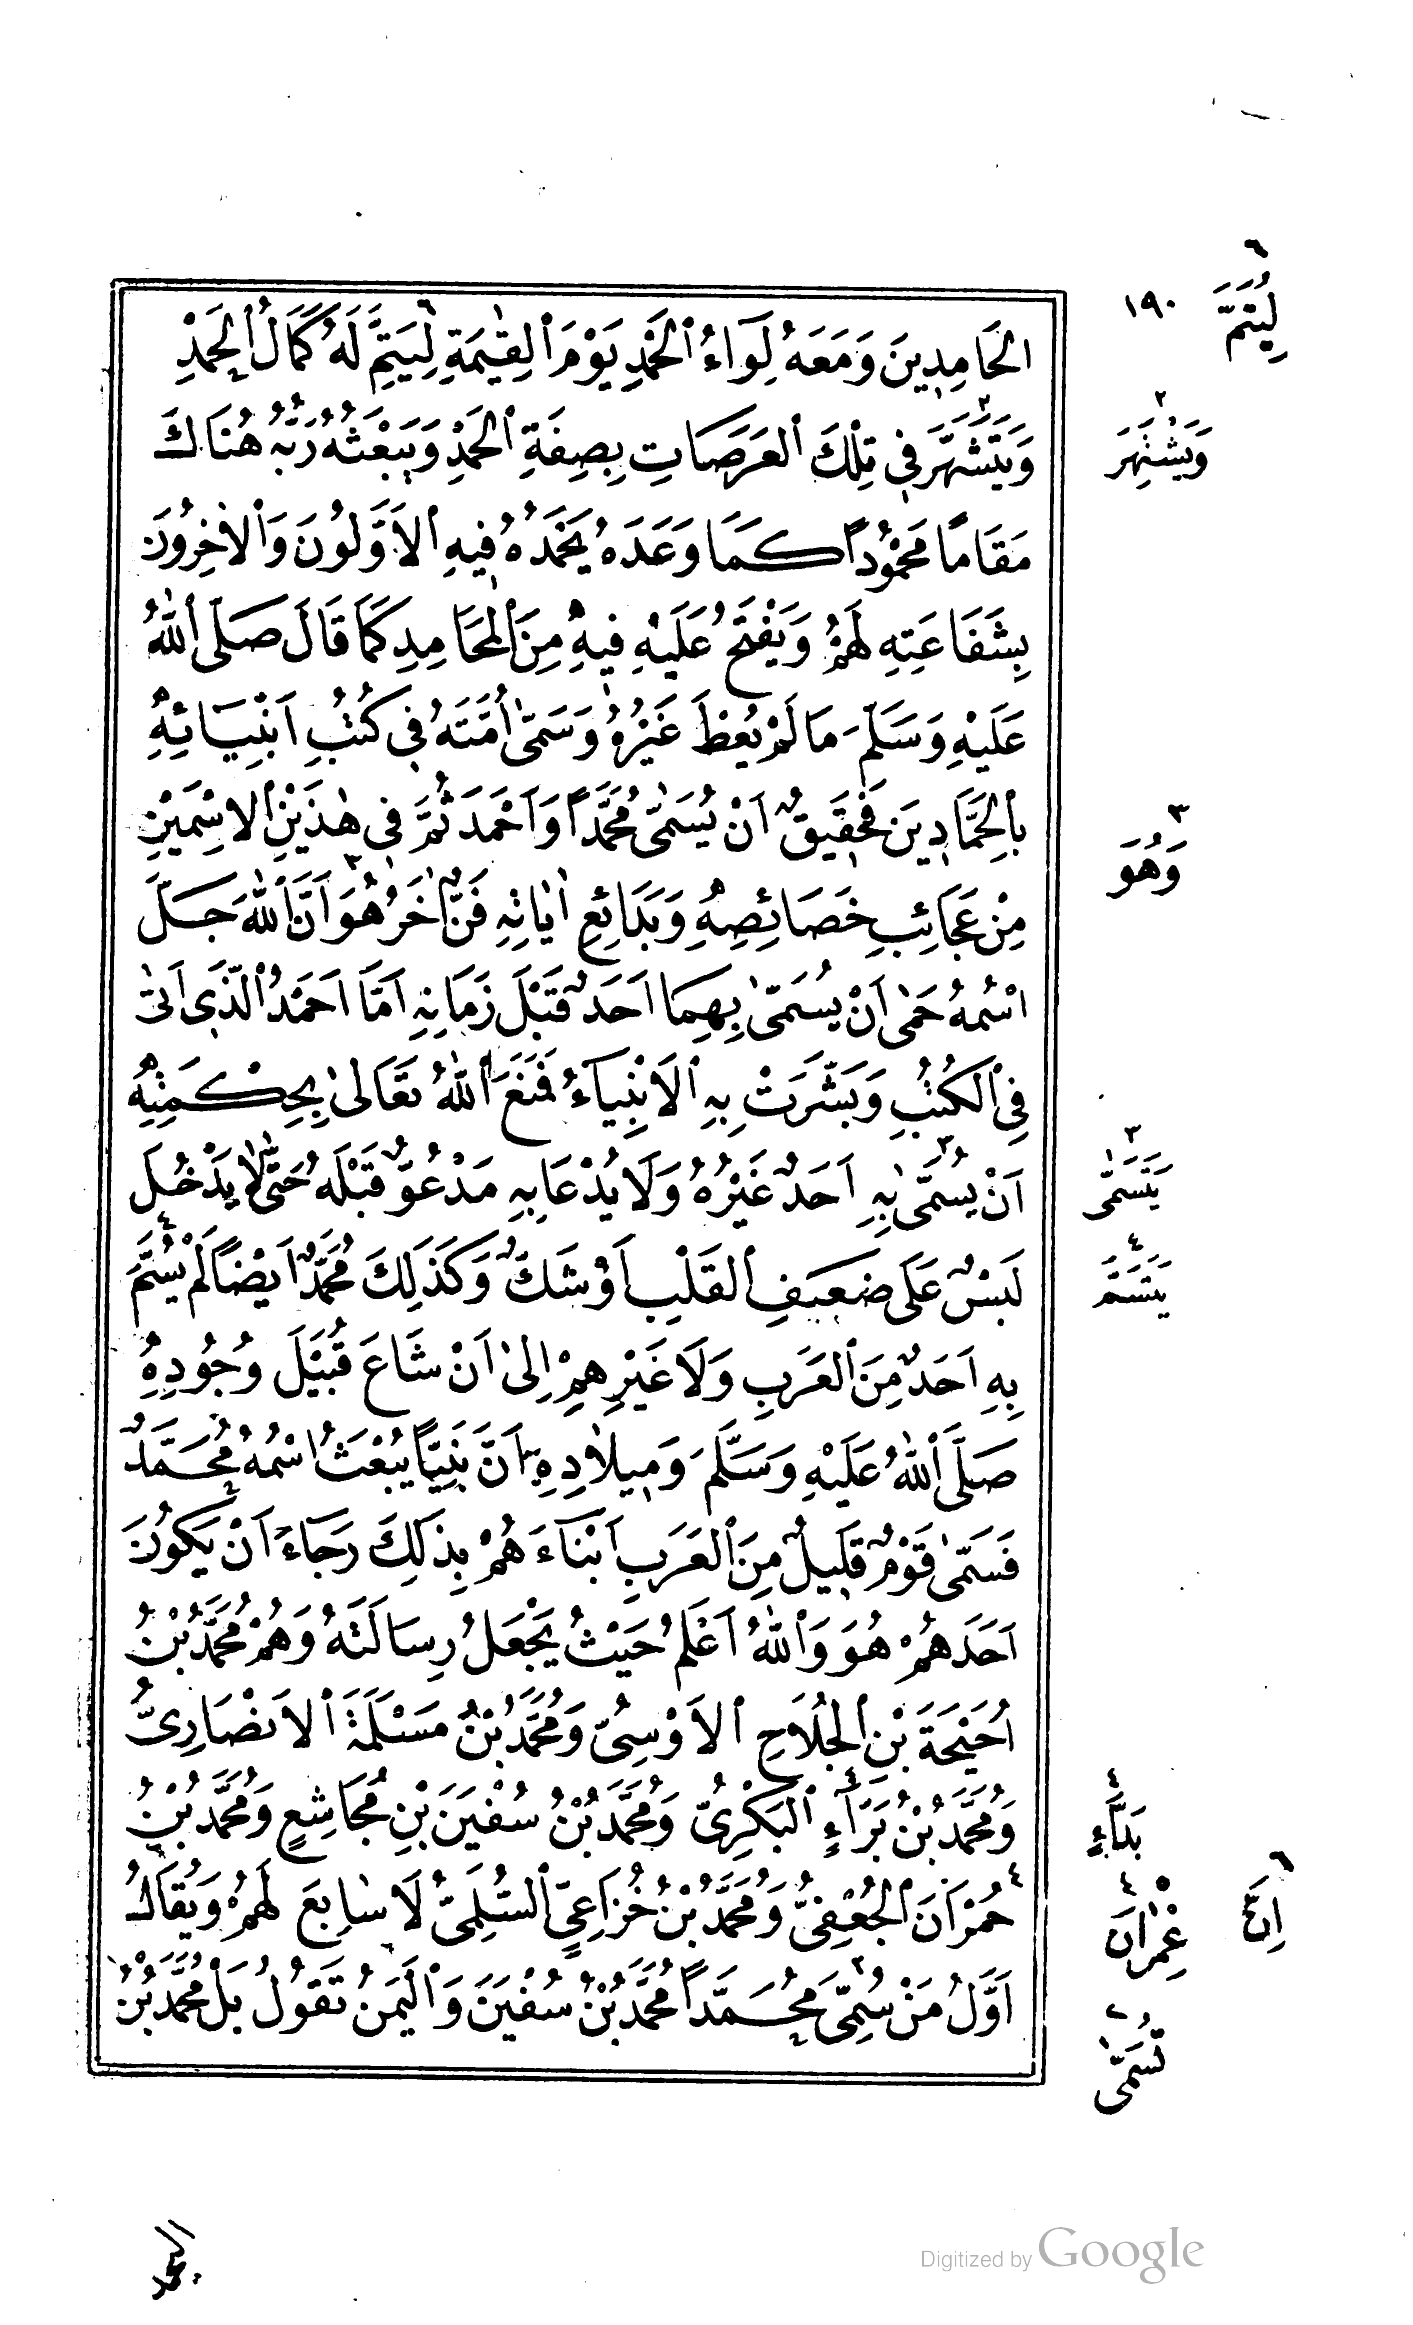 ١٩٠
الْحَامِدِينَ وَمَعَهُ لِوَآءُ الْحَمْدِ يَوْمَ الْقِيٰمَةِ لِيَتِمَّ لَهُ كَمَالُ الْحَمْدِ
وَيَتَشَهَّرَ فِي تِلْكَ الْعَرَصَاتِ بِصِفَةِ الْحَمْدِ وَيَبْعَثُهُ رَبُّهُ هُنَاكَ
مَقَامًا مَحْمُودًا كَمَا وَعَدَهُ يَحْمَدُهُ فِيهِ الْاَوَّلُونَ وَالْاٰخِرُونَ
بِشَفَاعَتِهِ لَهُمْ وَيَفْتَحُ عَلَيْهِ فِيهِ مِنَ الْمَحَامِدِ كَمَا قَالَ صَلَّى اللّٰهُ
عَلَيْهِ وَسَلَّمَ مَا لَمْ يُعْطَ غَيْرُهُ وَسَمّٰى اُمَّتَهُ فِي كُتُبِ اَنْبِيَائِهِ
بِالْحَمَّادِينَ فَحَقِيقٌ اَنْ يُسَمّٰى مُحَمَّدًا وَاَحْمَدَ ثُمَّ فِي هٰذَيْنِ الْاِسْمَيْنِ
مِنْ عَجَائِبِ خَصَائِصِهِ وَبَدَائِعِ اٰيَاتِهِ فَنٌّ اٰخَرُ هُوَ اَنَّ اللّٰهَ جَلَّ
اسْمُهُ حَمٰى اَنْ يُسَمّٰى بِهِمَا اَحَدٌ قَبْلَ زَمَانِهِ اَمَّا اَحْمَدُ الَّذِي اَتٰى
فِي الْكُتُبِ وَبَشَّرَتْ بِهِ الْاَنْبِيَآءُ فَمَنَعَ اللّٰهُ تَعَالٰى بِحِكْمَتِهِ
اَنْ يُسَمّٰى بِهِ اَحَدٌ غَيْرُهُ وَلَا يُدْعَا بِهِ مَدْعُوٌّ قَبْلَهُ حَتّٰى لَا يَدْخُلَ
لَبْسٌ عَلَى ضَعِيفِ الْقَلْبِ اَوْ شَكٌّ وَكَذَلِكَ مُحَمَّدٌ اَيْضًا لَمْ يُسَمَّ
بِهِ اَحَدٌ مِنَ الْعَرَبِ وَلَا غَيْرِهِمْ اِلٰى اَنْ شَاعَ قُبَيْلَ وُجُودِهِ
صَلَّى اللّٰهُ عَلَيْهِ وَسَلَّمَ وَمِيلَادِهِ اَنَّ نَبِيًّا يُبْعَثُ اسْمُهُ مُحَمَّدٌ
فَسَمّٰى قَوْمٌ قَلِيلٌ مِنَ الْعَرَبِ اَبْنَآءَهُمْ بِذَلِكَ رَجَآءَ اَنْ يَكُونَ
اَحَدَهُمْ هُوَ وَاللّٰهُ اَعْلَمُ حَيْثُ يَجْعَلُ رِسَالَتَهُ وَهُمْ مُحَمَّدُ بْنُ
اُحَيْحَةَ بْنِ الْجُلَاحِ الْاَوْسِيُّ وَمُحَمَّدُ بْنُ مَسْلَمَةَ الْاَنْصَارِيُّ
وَمُحَمَّدُ بْنُ بَرَّآءٍ الْبَكْرِيُّ وَمُحَمَّدُ بْنُ سُفْيٰنَ بْنِ مُجَاشِعٍ وَمُحَمَّدُ بْنُ
حُمْرَانَ الْجُعْفِيُّ وَمُحَمَّدُ بْنُ خُزَاعِيٍّ السُّلَمِيُّ لَا سَابِعَ لَهُمْ وَيُقَالُ
اَوَّلُ مَنْ سُمِّيَ مُحَمَّدًا مُحَمَّدُ بْنُ سُفْيٰنَ وَالْيَمَنُ تَقُولُ بَلْ مُحَمَّدُ بْنُ
٦
لِيُتَمَّ
٢
وَيَشْتَهِرَ
٣
وَهُوَ
٣
يَتَسَمّٰى
٤
يَتَسَمَّ
٤
بَدَّآءٍ
٤ ٥
عِمْرَانَ
٦
اِنَّ
تُسَمّٰى
Digitized by Google